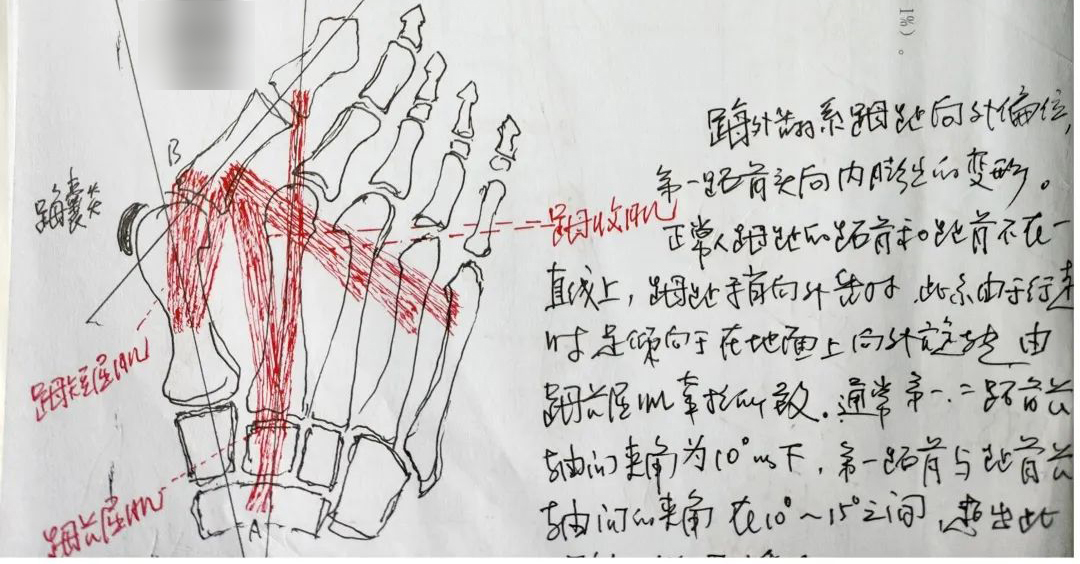 1%）。
B
𧿹囊炎
𧿹收肌
𧿹短屈肌
𧿹长屈肌
A
𧿹外翻系𧿹趾向外偏位，
第一跖骨头向内膨出的变形。
正常人𧿹趾的跖骨和趾骨不在一
直线上，𧿹趾稍向外翻，此系由于行走
时足倾向于在地面上向外旋转，由
𧿹长屈肌牵拉所致。通常第一、二跖骨长
轴的夹角为10°以下，第一跖骨与趾骨长
轴间的夹角在10°～15°之间，超出此